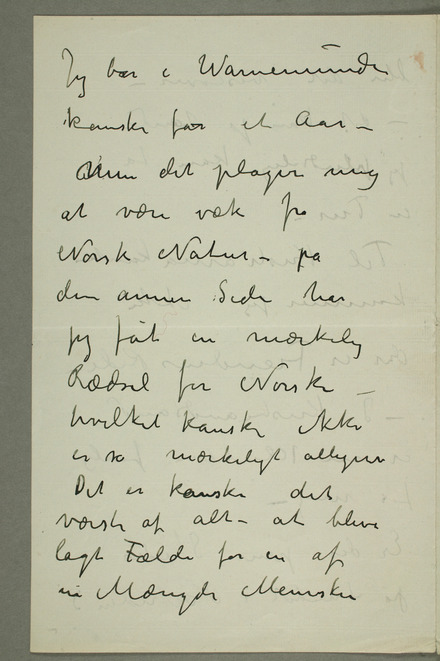 Jeg bor i Warnemünde
kanske for et Aar –
Men det plager mig
at være væk fra
Norsk Natur – på
den annen Side har
jeg fåt en mærkelig
Rædsel for Norske –
hvilket kanske ikke
er so mærkeligt alligevel
Det er kanske det
værste af alt – at blive
lagt Fælde for en af
en Mængde Mennesker